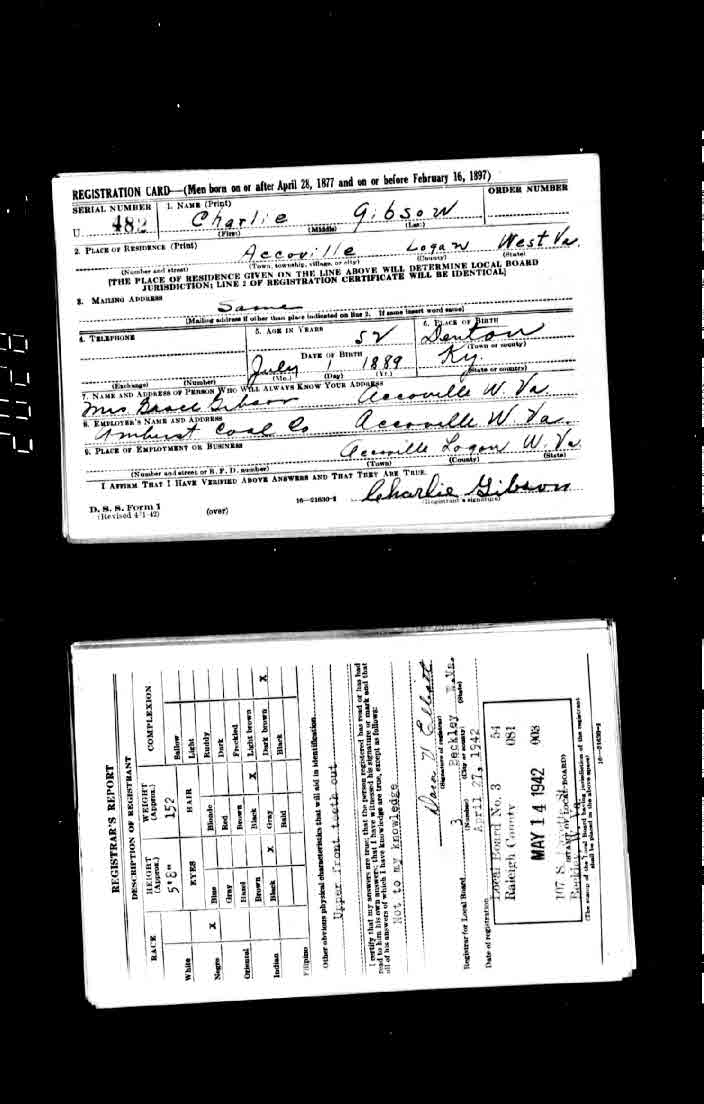 REGISTRATION CARD—(Men born on or after April 28, 1877 and on or before February 16, 1897)
SERIAL NUMBER 1. NAME (Print) ORDER NUMBER
U. 482 Charlie Gibson
(First) (Middle) (Last)
2. PLACE OF RESIDENCE (Print)
Accoville Logan West Va.
(Number and street) (Town, township, village, or city) (County) (State)
[THE PLACE OF RESIDENCE GIVEN ON THE LINE ABOVE WILL DETERMINE LOCAL BOARD
JURISDICTION; LINE 2 OF REGISTRATION CERTIFICATE WILL BE IDENTICAL]
3. MAILING ADDRESS
Same
[Mailing address if other than place indicated on line 2. If same insert word same]
4. TELEPHONE 5. AGE IN YEARS 6. PLACE OF BIRTH
52 Denton
DATE OF BIRTH (Town or county)
July 1 1889 Ky.
(Exchange) (Number) (Mo.) (Day) (Yr.) (State or country)
7. NAME AND ADDRESS OF PERSON WHO WILL ALWAYS KNOW YOUR ADDRESS
Mrs Grace Gibson Accoville W. Va
8. EMPLOYER'S NAME AND ADDRESS
Amherst Coal Co Accoville W. Va.
9. PLACE OF EMPLOYMENT OR BUSINESS
Accoville Logan W. Va
(Number and street or R. F. D. number) (Town) (County) (State)
I AFFIRM THAT I HAVE VERIFIED ABOVE ANSWERS AND THAT THEY ARE TRUE.
D. S. S. Form 1 16—21630-2 Charlie Gibson
(Revised 4-1-42) (over) (Registrant's signature)
REGISTRAR'S REPORT
DESCRIPTION OF REGISTRANT
RACE HEIGHT (Approx.) WEIGHT (Approx.) COMPLEXION
5'8" 152 Sallow
White EYES HAIR Light
Negro X Blue Blonde Ruddy
Gray Red Dark
Oriental Hazel Brown Freckled
Brown Black X Light brown
Indian Black X Gray Dark brown X
Bald Black
Filipino
Other obvious physical characteristics that will aid in identification
Upper front tooth out
I certify that my answers are true; that the person registered has read or has had
read to him his own answers; that I have witnessed his signature or mark and that
all of his answers of which I have knowledge are true, except as follows:
Not to my knowledge
(Signature of registrar)
Registrar for Local Board 3 Beckley W.Va.
(Number) (City or county) (State)
Date of registration April 27, 1942
Local Board No. 3 54
Raleigh County 081
MAY 14 1942 003
107 S.
Beckley W. Va.
(STAMP OF LOCAL BOARD)
(The stamp of the Local Board having jurisdiction of the registrant
shall be placed in the above space)
16—21630-2